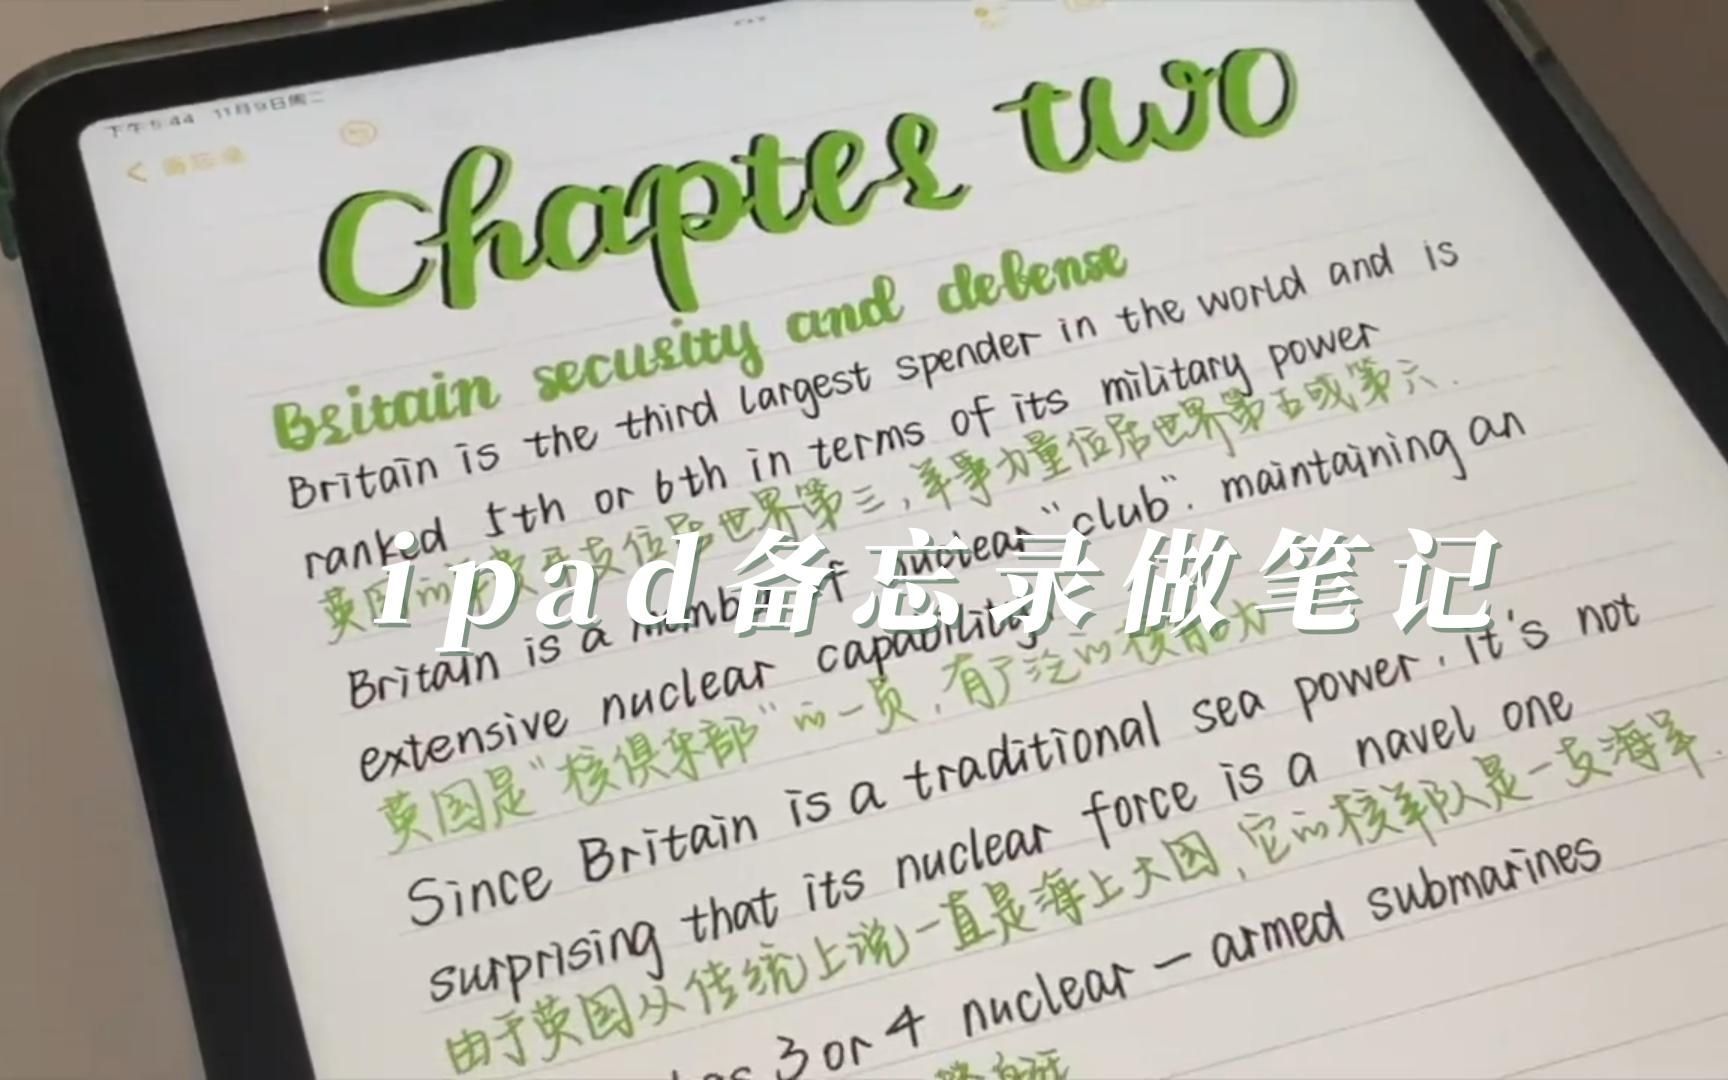 下午5:44 11月9日周二
备忘录
Chapter two
Britain security and defense
Britain is the third largest spender in the world and is
ranked 5th or 6th in terms of its military power
英国的军费开支位居世界第三，军事力量位居世界第五或第六.
Britain is a member of nuclear "club". maintaining an
ipad备忘录做笔记
extensive nuclear capability
英国是"核俱乐部"的一员，有广泛的核能力
Since Britain is a traditional sea power. it's not
surprising that its nuclear force is a navel one
由于英国从传统上说一直是海上大国，它的核军队是一支海军.
has 3 or 4 nuclear-armed submarines